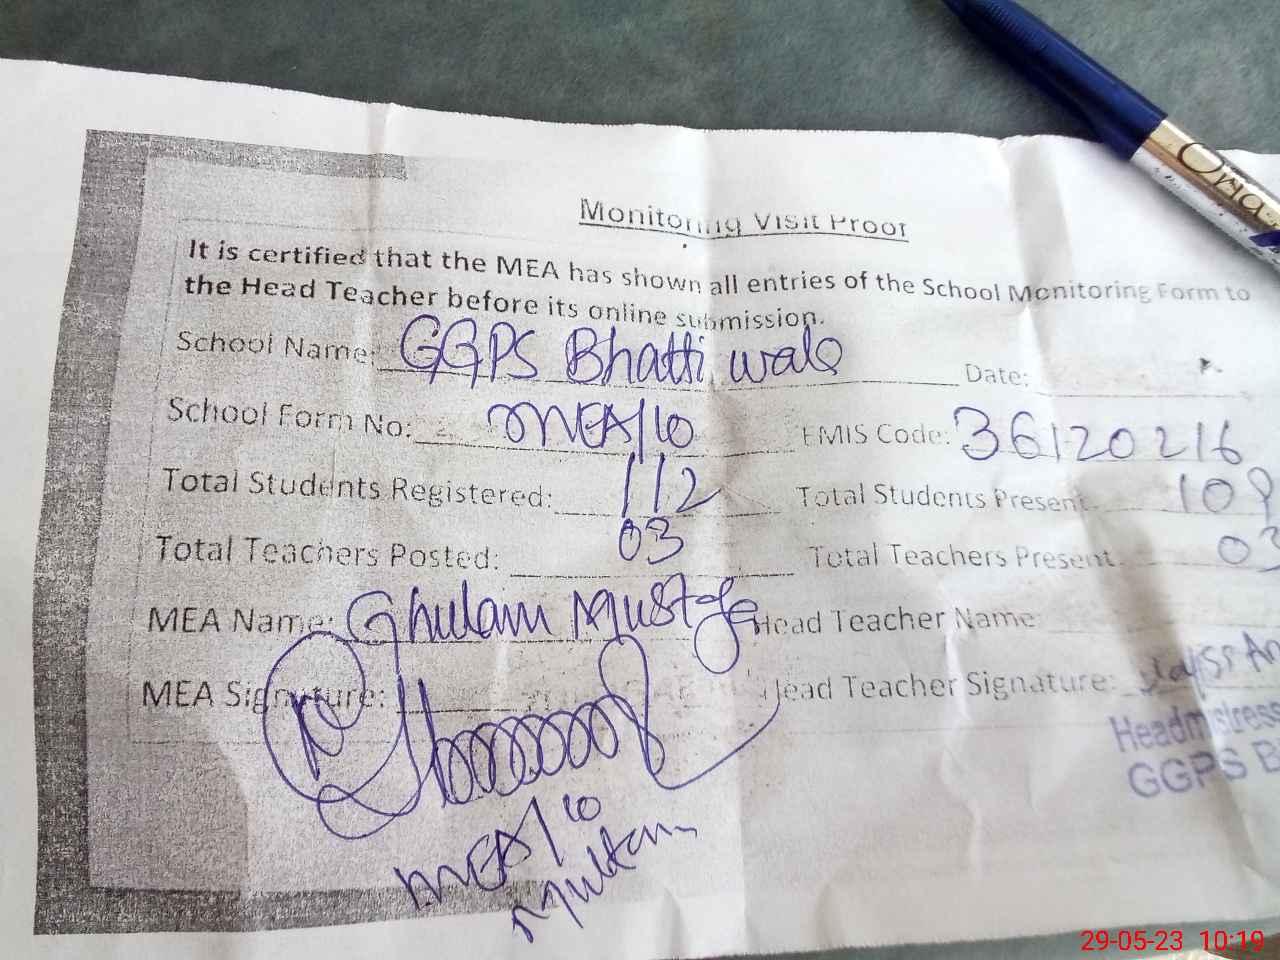 Monitoring Visit Proof
It is certified that the MEA has shown all entries of the School Monitoring Form to
the Head Teacher before its online submission.
School Name: GGPS Bhatti wala Date:
School Form No: MEA/10 EMIS Code: 36120216
Total Students Registered: 112 Total Students Present: 109
Total Teachers Posted: 03 Total Teachers Present: 03
MEA Name: Ghulam Mustafa Head Teacher Name:
MEA Signature: Head Teacher Signature:
Headmistress
GGPS B
MEA/10
Multan
29-05-23 10:19